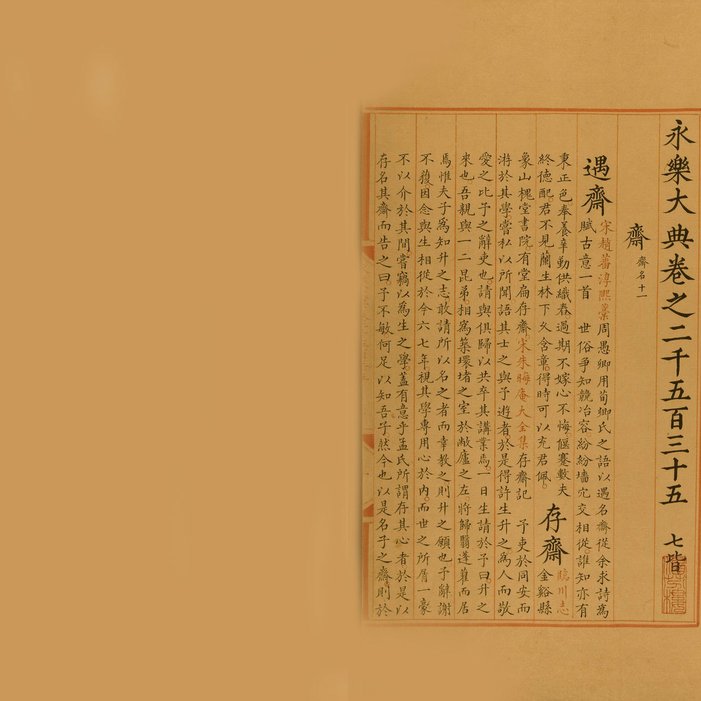 永樂大典卷之二千五百三十五 七皆
齋 齋名十一
遇齋
宋趙蕃淳熙藁周愚卿用荀卿氏之語以遇名齋從余求詩為
賦古意一首 世俗爭知競冶容紛紛墻穴交相從誰知亦有
東正色奉養辛勤供織舂過期不嫁心不悔偃蹇數夫
終德配君不見蘭生林下久含章得時可以充君佩
存齋
臨川志
金谿縣
象山槐堂書院有堂扁存齋宋朱晦庵大全集存齋記 予吏於同安而
游於其學嘗私以所聞語其士之與予遊者於是得許生升之為人而敬
愛之比予之辭吏也請與俱歸以共卒其講業焉一日生請於予曰升之
來也吾親與一二昆弟相為築環堵之室於敝廬之左將歸翳蓬藋而居
焉惟夫子為知升之志敢請所以名之者而幸教之則升之願也予辭謝
不獲因念與生相從於今六七年視其學專用心於內而世之所屑一豪
不以介於其間嘗竊以為生之學蓋有意乎孟氏所謂存其心者於是以
存名其齋而告之曰予不敏何足以知吾子然今也以是名子之齋則於